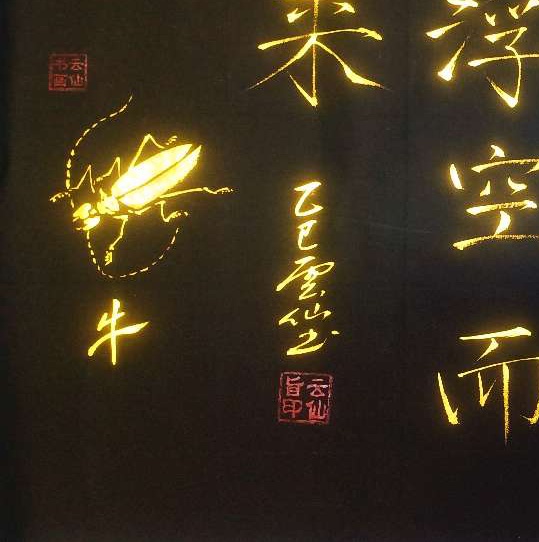 浮空而
来
乙巳雲仙书
云仙
云仙书画
牛